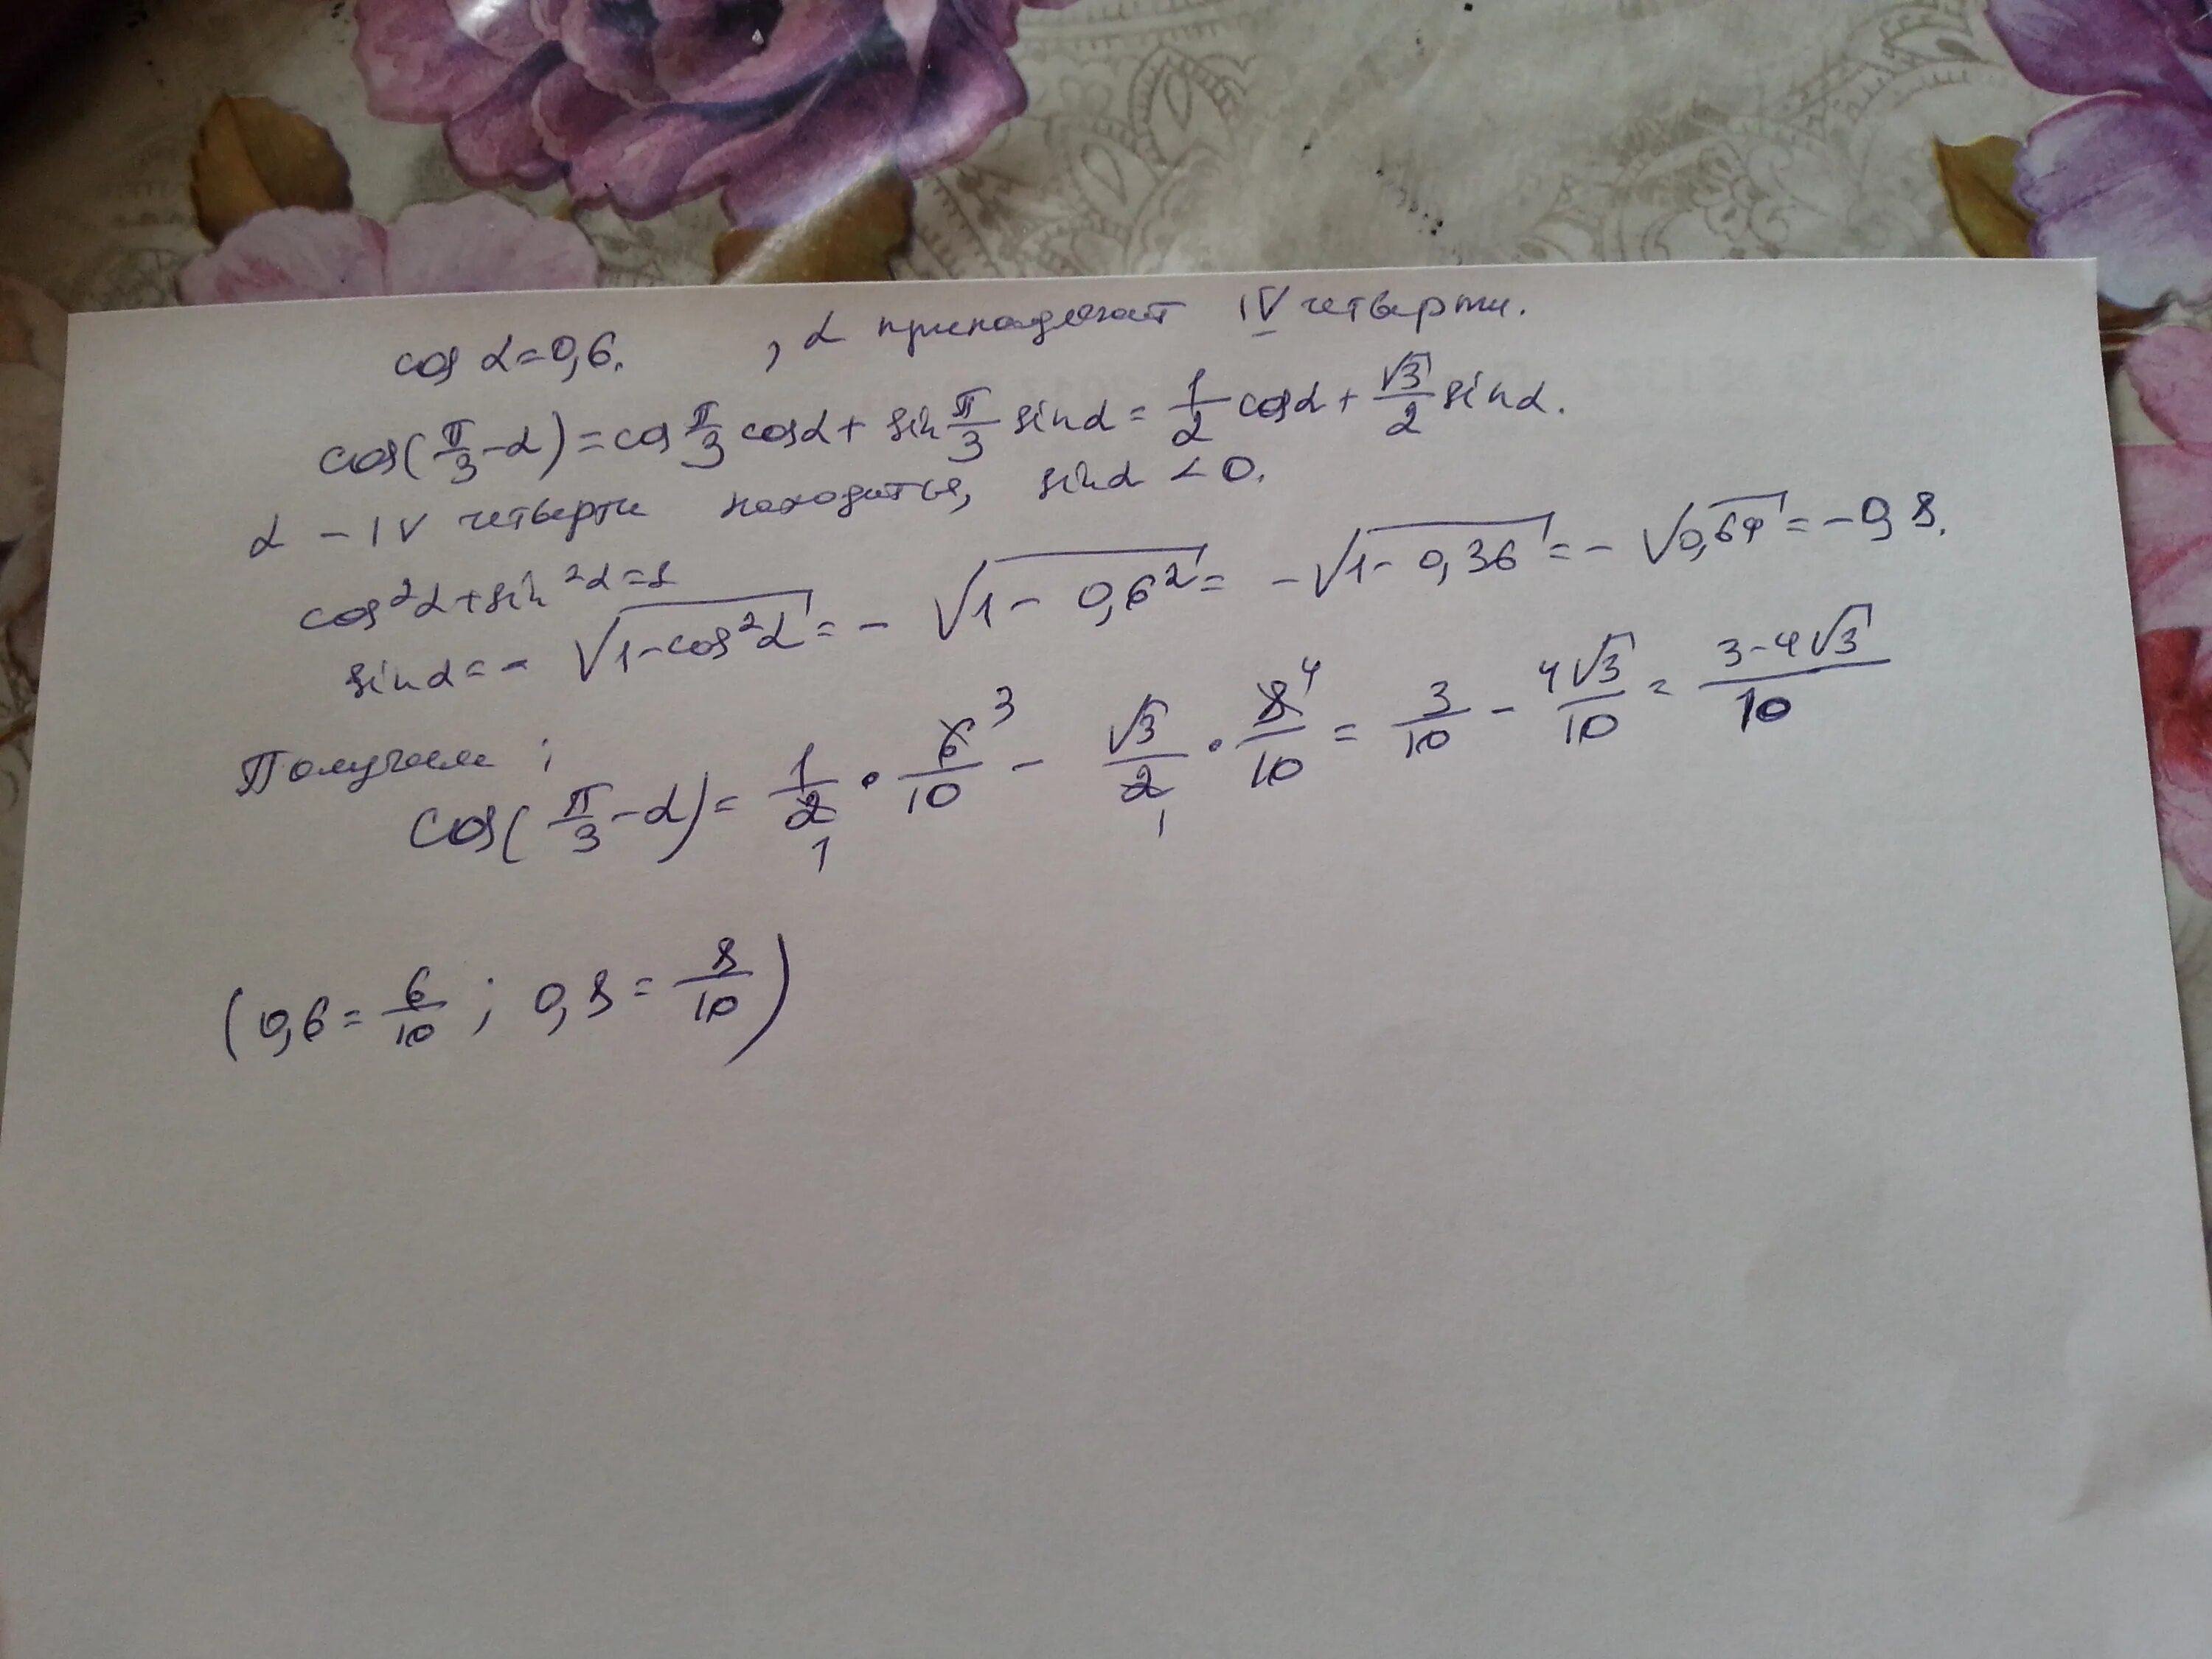 cos α = 0,6. , α принадлежит IV четверти.
cos(π/3 - α) = cos π/3 cos α + sin π/3 sin α = 1/2 cos α + √3/2 sin α.
α - IV четверти находиться, sin α < 0.
cos²α + sin²α = 1
sin α = - √(1 - cos²α) = - √(1 - 0,6²) = - √(1 - 0,36) = - √0,64 = - 0,8.
Получаем ;
cos(π/3 - α) = 1/2 · 6/10 - √3/2 · 8/10 = 3/10 - 4√3/10 = (3 - 4√3)/10
(0,6 = 6/10 ; 0,8 = 8/10)